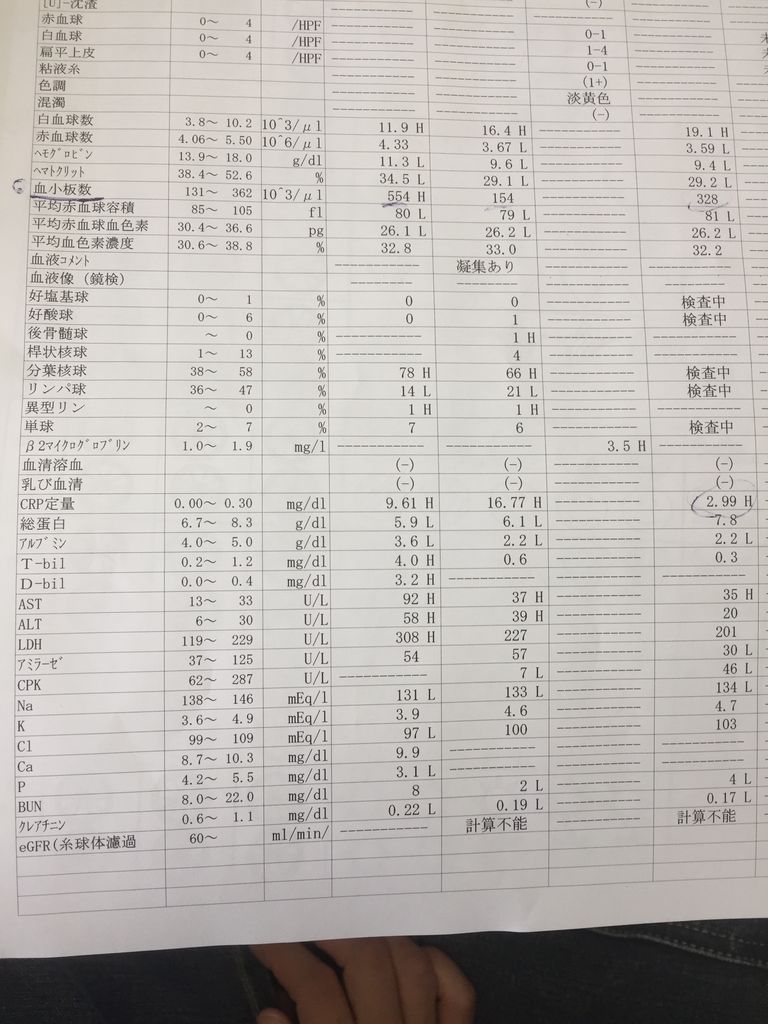 [U]-沈渣 (-)
赤血球 0～ 4 /HPF ----------- ----------- -----------
白血球 0～ 4 /HPF ----------- ----------- 0-1 -----------
扁平上皮 0～ 4 /HPF ----------- ----------- 1-4 -----------
粘液糸 ----------- ----------- 0-1 -----------
色調 ----------- ----------- (1+) -----------
混濁 ----------- ----------- 淡黄色 -----------
白血球数 3.8～ 10.2 10^3/μl 11.9 H 16.4 H (-) 19.1 H
赤血球数 4.06～ 5.50 10^6/μl 4.33 3.67 L ----------- 3.59 L
ﾍﾓｸﾞﾛﾋﾞﾝ 13.9～ 18.0 g/dl 11.3 L 9.6 L ----------- 9.4 L
ﾍﾏﾄｸﾘｯﾄ 38.4～ 52.6 % 34.5 L 29.1 L ----------- 29.2 L
血小板数 131～ 362 10^3/μl 554 H 154 ----------- 328
平均赤血球容積 85～ 105 fl 80 L 79 L ----------- 81 L
平均赤血球血色素 30.4～ 36.6 pg 26.1 L 26.2 L ----------- 26.2 L
平均血色素濃度 30.6～ 38.8 % 32.8 33.0 ----------- 32.2
血液ｺﾒﾝﾄ ----------- 凝集あり ----------- -----------
血液像（鏡検） -------- -------- ----------- -----------
好塩基球 0～ 1 % 0 0 ----------- 検査中
好酸球 0～ 6 % 0 1 ----------- 検査中
後骨髄球 ～ 0 % ----------- 1 H ----------- -----------
桿状核球 1～ 13 % ----------- 4 ----------- -----------
分葉核球 38～ 58 % 78 H 66 H ----------- 検査中
リンパ球 36～ 47 % 14 L 21 L ----------- 検査中
異型リン ～ 0 % 1 H 1 H ----------- -----------
単球 2～ 7 % 7 6 ----------- 検査中
β2ﾏｲｸﾛｸﾞﾛﾌﾞﾘﾝ 1.0～ 1.9 mg/l ----------- ----------- 3.5 H -----------
血清溶血 (-) (-) ----------- (-)
乳び血清 (-) (-) ----------- (-)
CRP定量 0.00～ 0.30 mg/dl 9.61 H 16.77 H ----------- 2.99 H
総蛋白 6.7～ 8.3 g/dl 5.9 L 6.1 L ----------- 7.8
ｱﾙﾌﾞﾐﾝ 4.0～ 5.0 g/dl 3.6 L 2.2 L ----------- 2.2 L
T-bil 0.2～ 1.2 mg/dl 4.0 H 0.6 ----------- 0.3
D-bil 0.0～ 0.4 mg/dl 3.2 H ----------- ----------- -----------
AST 13～ 33 U/L 92 H 37 H ----------- 35 H
ALT 6～ 30 U/L 58 H 39 H ----------- 20
LDH 119～ 229 U/L 308 H 227 ----------- 201
ｱﾐﾗｰｾﾞ 37～ 125 U/L 54 57 ----------- 30 L
CPK 62～ 287 U/L ----------- 7 L ----------- 46 L
Na 138～ 146 mEq/l 131 L 133 L ----------- 134 L
K 3.6～ 4.9 mEq/l 3.9 4.6 ----------- 4.7
Cl 99～ 109 mEq/l 97 L 100 ----------- 103
Ca 8.7～ 10.3 mg/dl 9.9 ----------- ----------- -----------
P 4.2～ 5.5 mg/dl 3.1 L ----------- ----------- -----------
BUN 8.0～ 22.0 mg/dl 8 2 L ----------- 4 L
ｸﾚｱﾁﾆﾝ 0.6～ 1.1 mg/dl 0.22 L 0.19 L ----------- 0.17 L
eGFR(糸球体濾過 60～ ml/min/ ----------- 計算不能 ----------- 計算不能